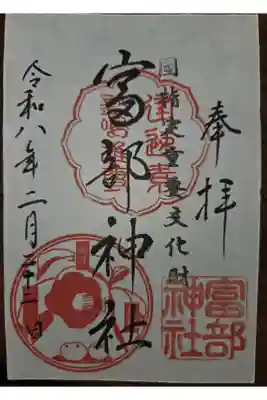 奉拝
国指定重要文化財
富部神社
令和八年二月二十二日
富部
神社